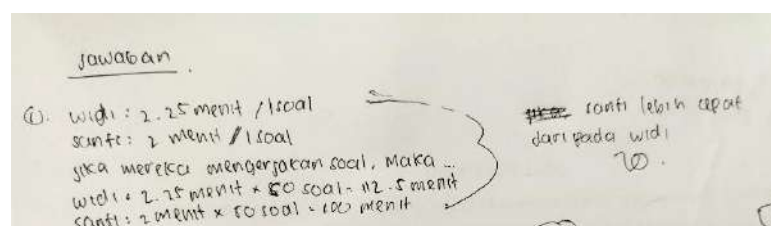 Jawaban
①. widi : 2.25 menit / 1 soal
santi : 2 menit / 1 soal
jika mereka mengerjakan soal, maka ...
widi : 2.25 menit x 50 soal = 112.5 menit
santi : 2 menit x 50 soal = 100 menit
santi lebih cepat
daripada widi